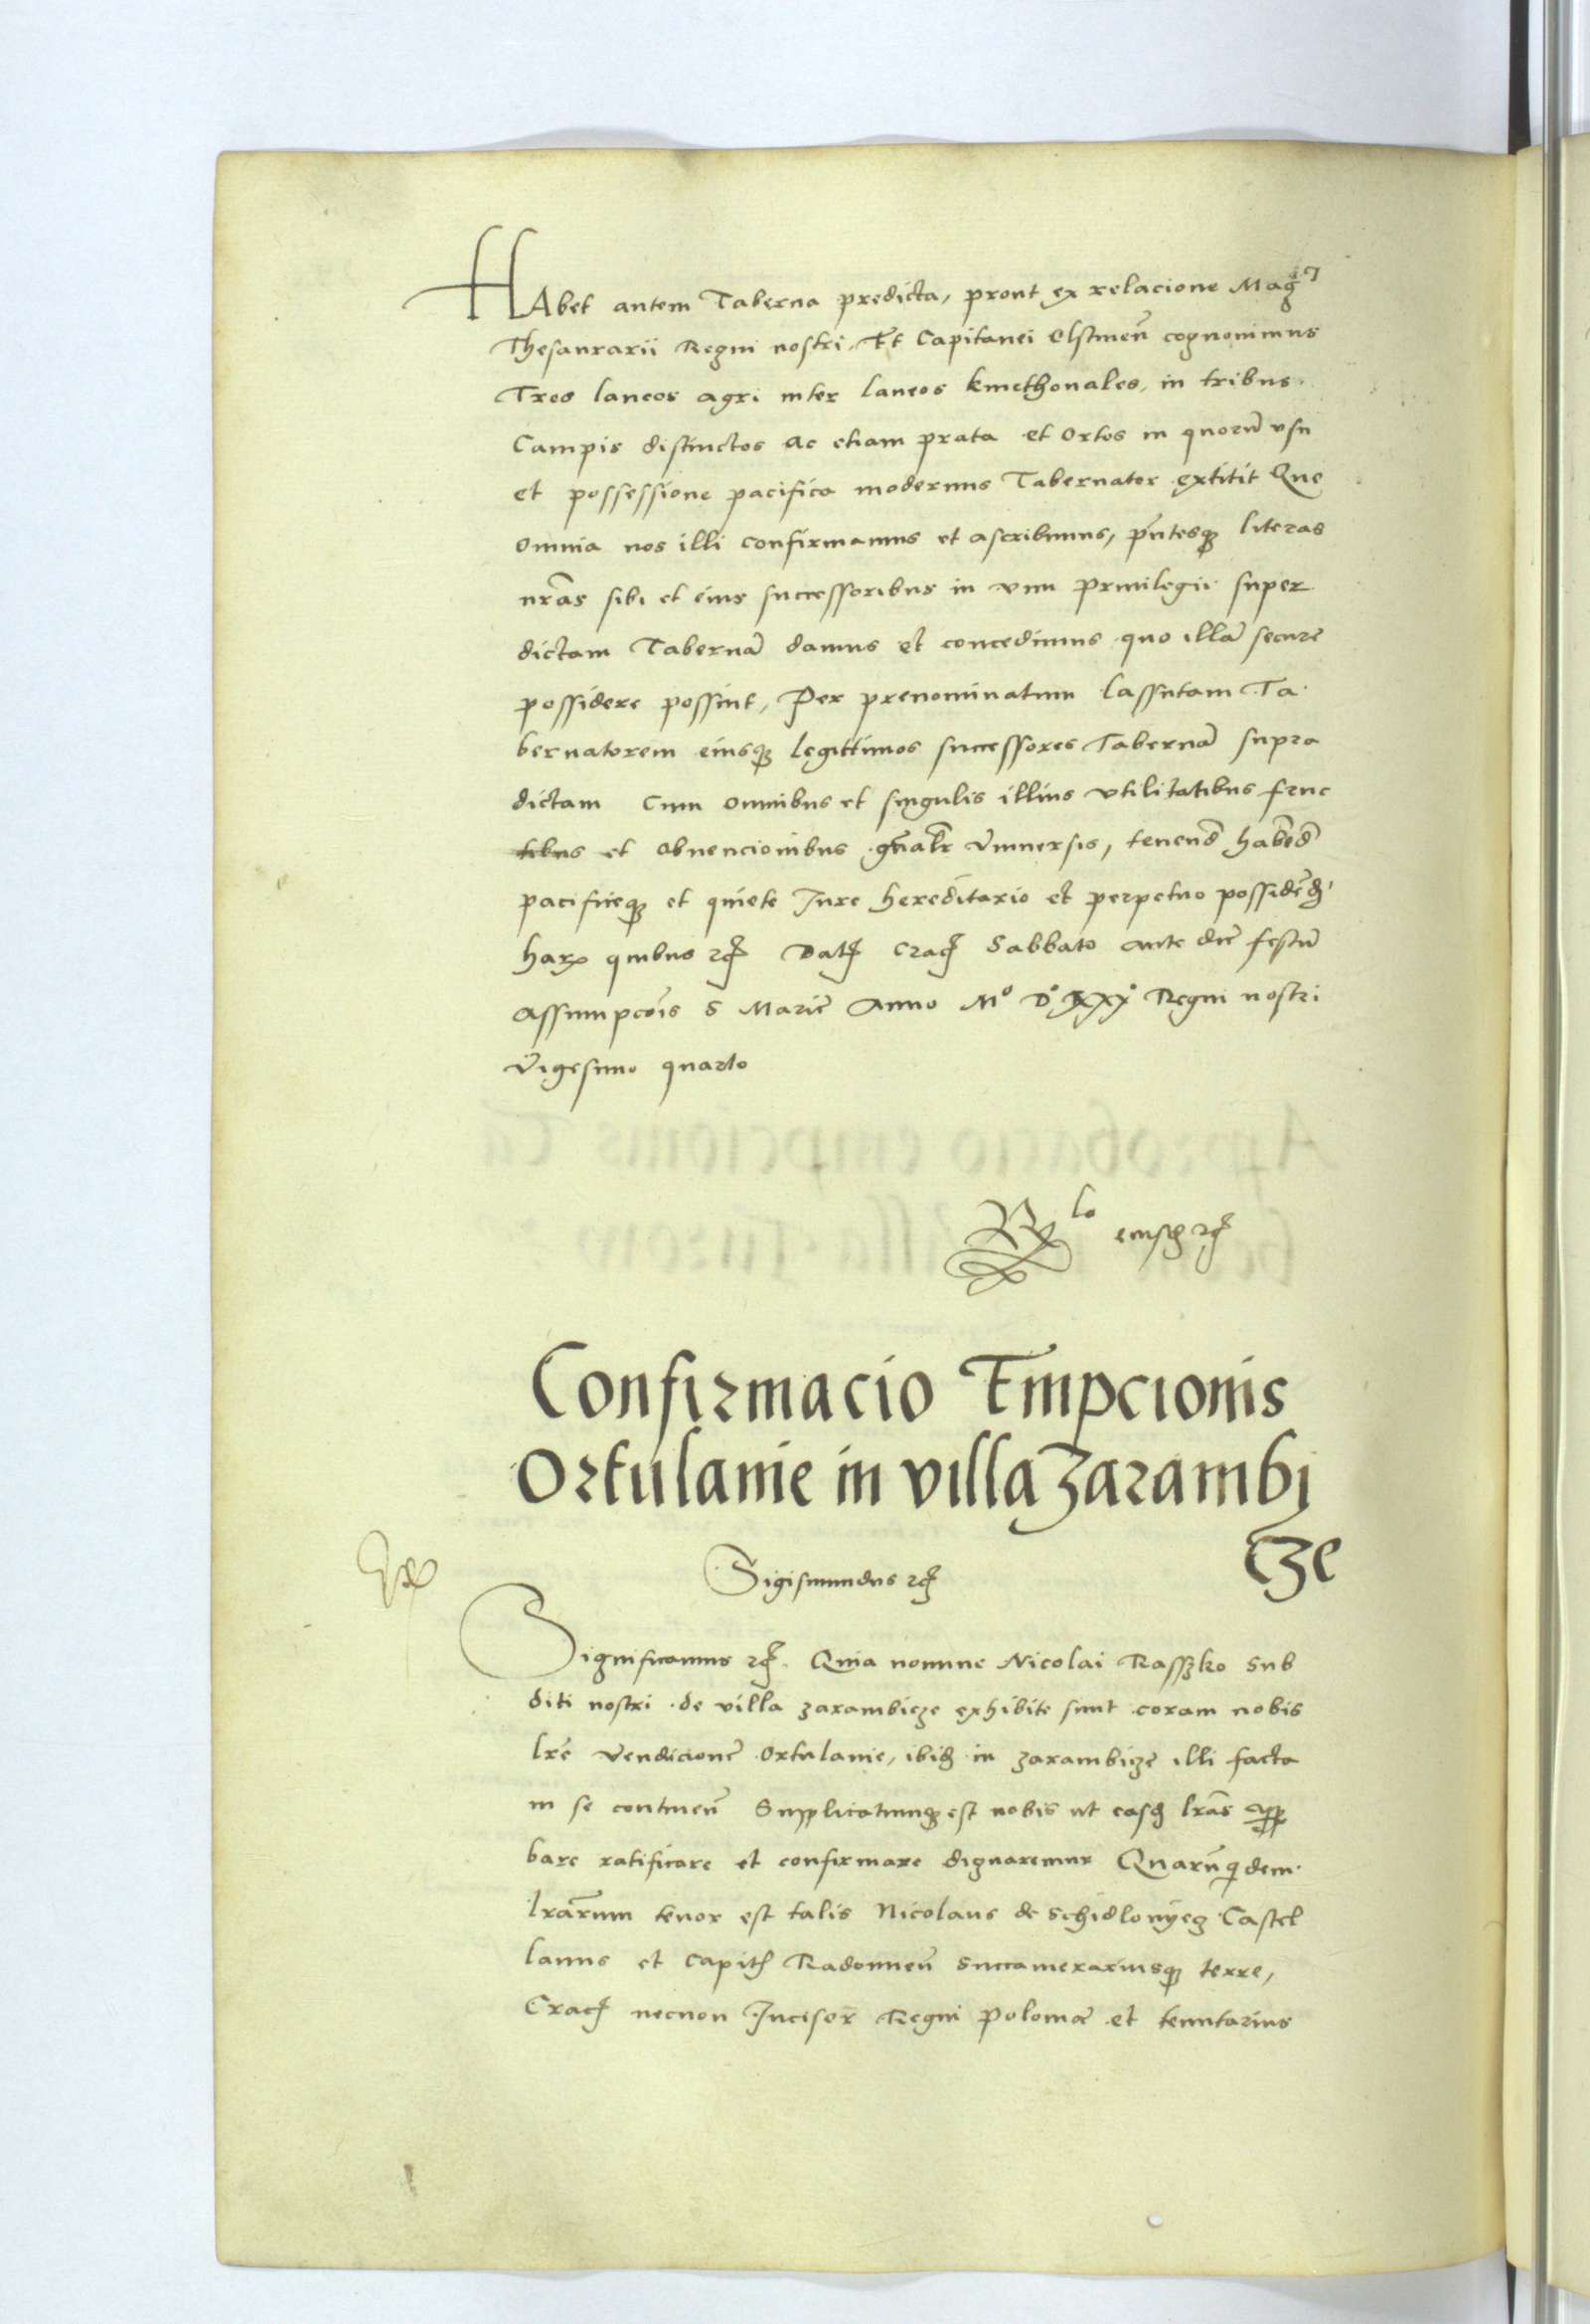 HAbet autem Taberna predicta, prout ex relacione Mag^ci
Thesaurarii Regni nostri, Et Capitanei Olstinen̄ cognouimus
Tres laneos agri inter laneos kmethonales, in tribus
Campis distinctos ac etiam prata et Ortos in quorū vsu
et possessione pacifica modernus Tabernator extitit Que
omnia nos illi confirmamus et ascribimus, pn̄tesq3 literas
nr̄as sibi et eius successoribus in vim priuilegii super
dictam Tabernā damus et concedimus quo illā secure
possidere possint, Per prenominatum Lassutam Ta
bernatorem eiusq3 legittimos successores Tabernā supra
dictam Cum omnibus et singulis illius vtilitatibus fruc
tibus et obuencionibus gn̄alr̄ Vniuersis, tenend̄ habēd̄
pacificeq3 et quiete Jure hereditario et perpetuo possidēd̄
harx quibus rc̄ Datꝭ Cracꝭ Sabbato ante diē festū
Assumpcōis S Marie Anno M° D° XXX° Regni nostri
Vigesimo quarto
R^lo eiusd̄ rc̄
Confirmacio Empcionis
Ortulanie in villa Zarambi
cze
Sigismundus rc̄
Significamus rc̄. Quia nomine Nicolai Rasszko Sub
diti nostri de villa zarambicze exhibite sunt coram nobis
lr̄e Vendicionē Ortulanie, ibid̄ in zarambicze illi factā
in se continen̄ Supplicatumq3 est nobis ut easd̄ lr̄as appro
bare ratificare et confirmare dignaremur Quarūquidem
lr̄arum tenor est talis Nicolaus de Schidlowyecz Castel
lanus et Capitꝭ Radomien̄ Succamerariusq3 terre,
Cracꝭ necnon Incisor Regni Polonie et tenutarius